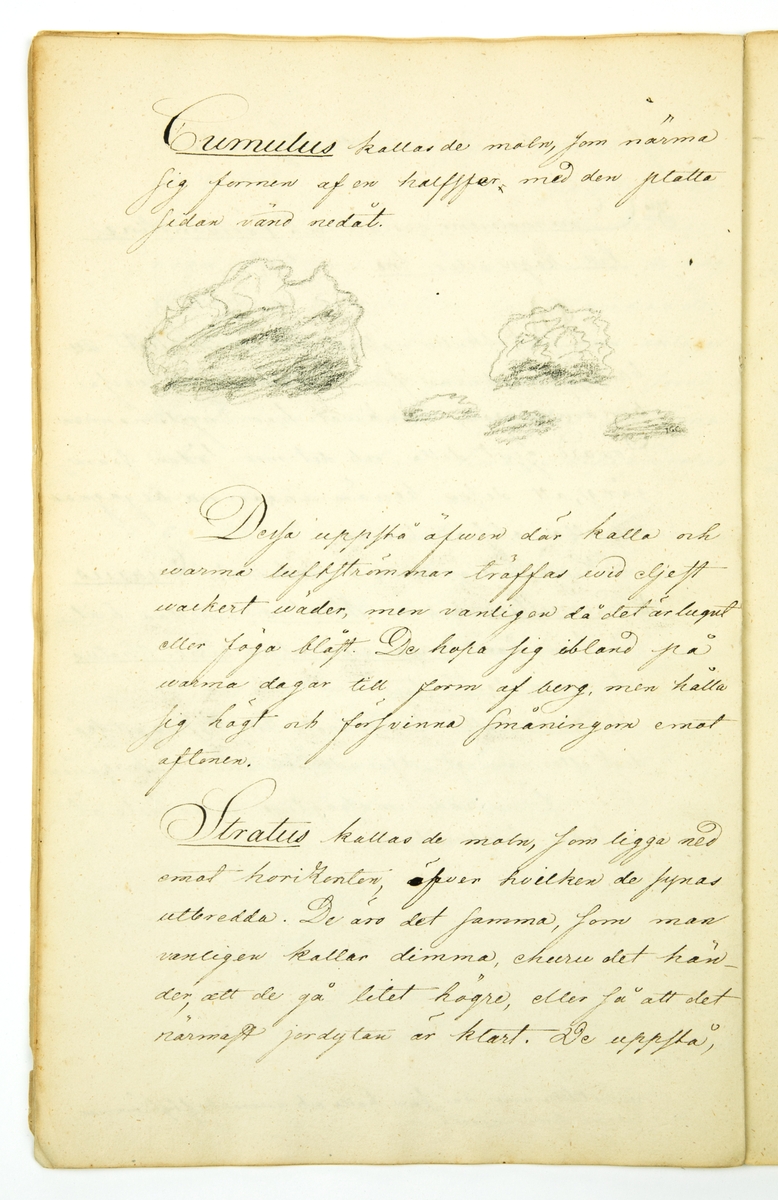 Cumulus kallas de moln, som närma
sig formen af en halfsfer, med den platta
sidan vänd nedåt.
Dessa uppstå äfwen där kalla och
warma luftströmmar träffas wid eljest
wackert wäder, men vanligen då det är lugnt
eller föga blåst. De hopa sig ibland på
warma dagar till form af berg, men hålla
sig högt och försvinna småningom emot
aftonen.
Stratus kallas de moln, som ligga ned
emot horizonten, öfver hvilken de synas
utbredda. De äro det samma, som man
vanligen kallar dimma, ehuru det hän-
der, att de gå litet högre, eller så att det
närmast jordytan är klart. De uppstå,